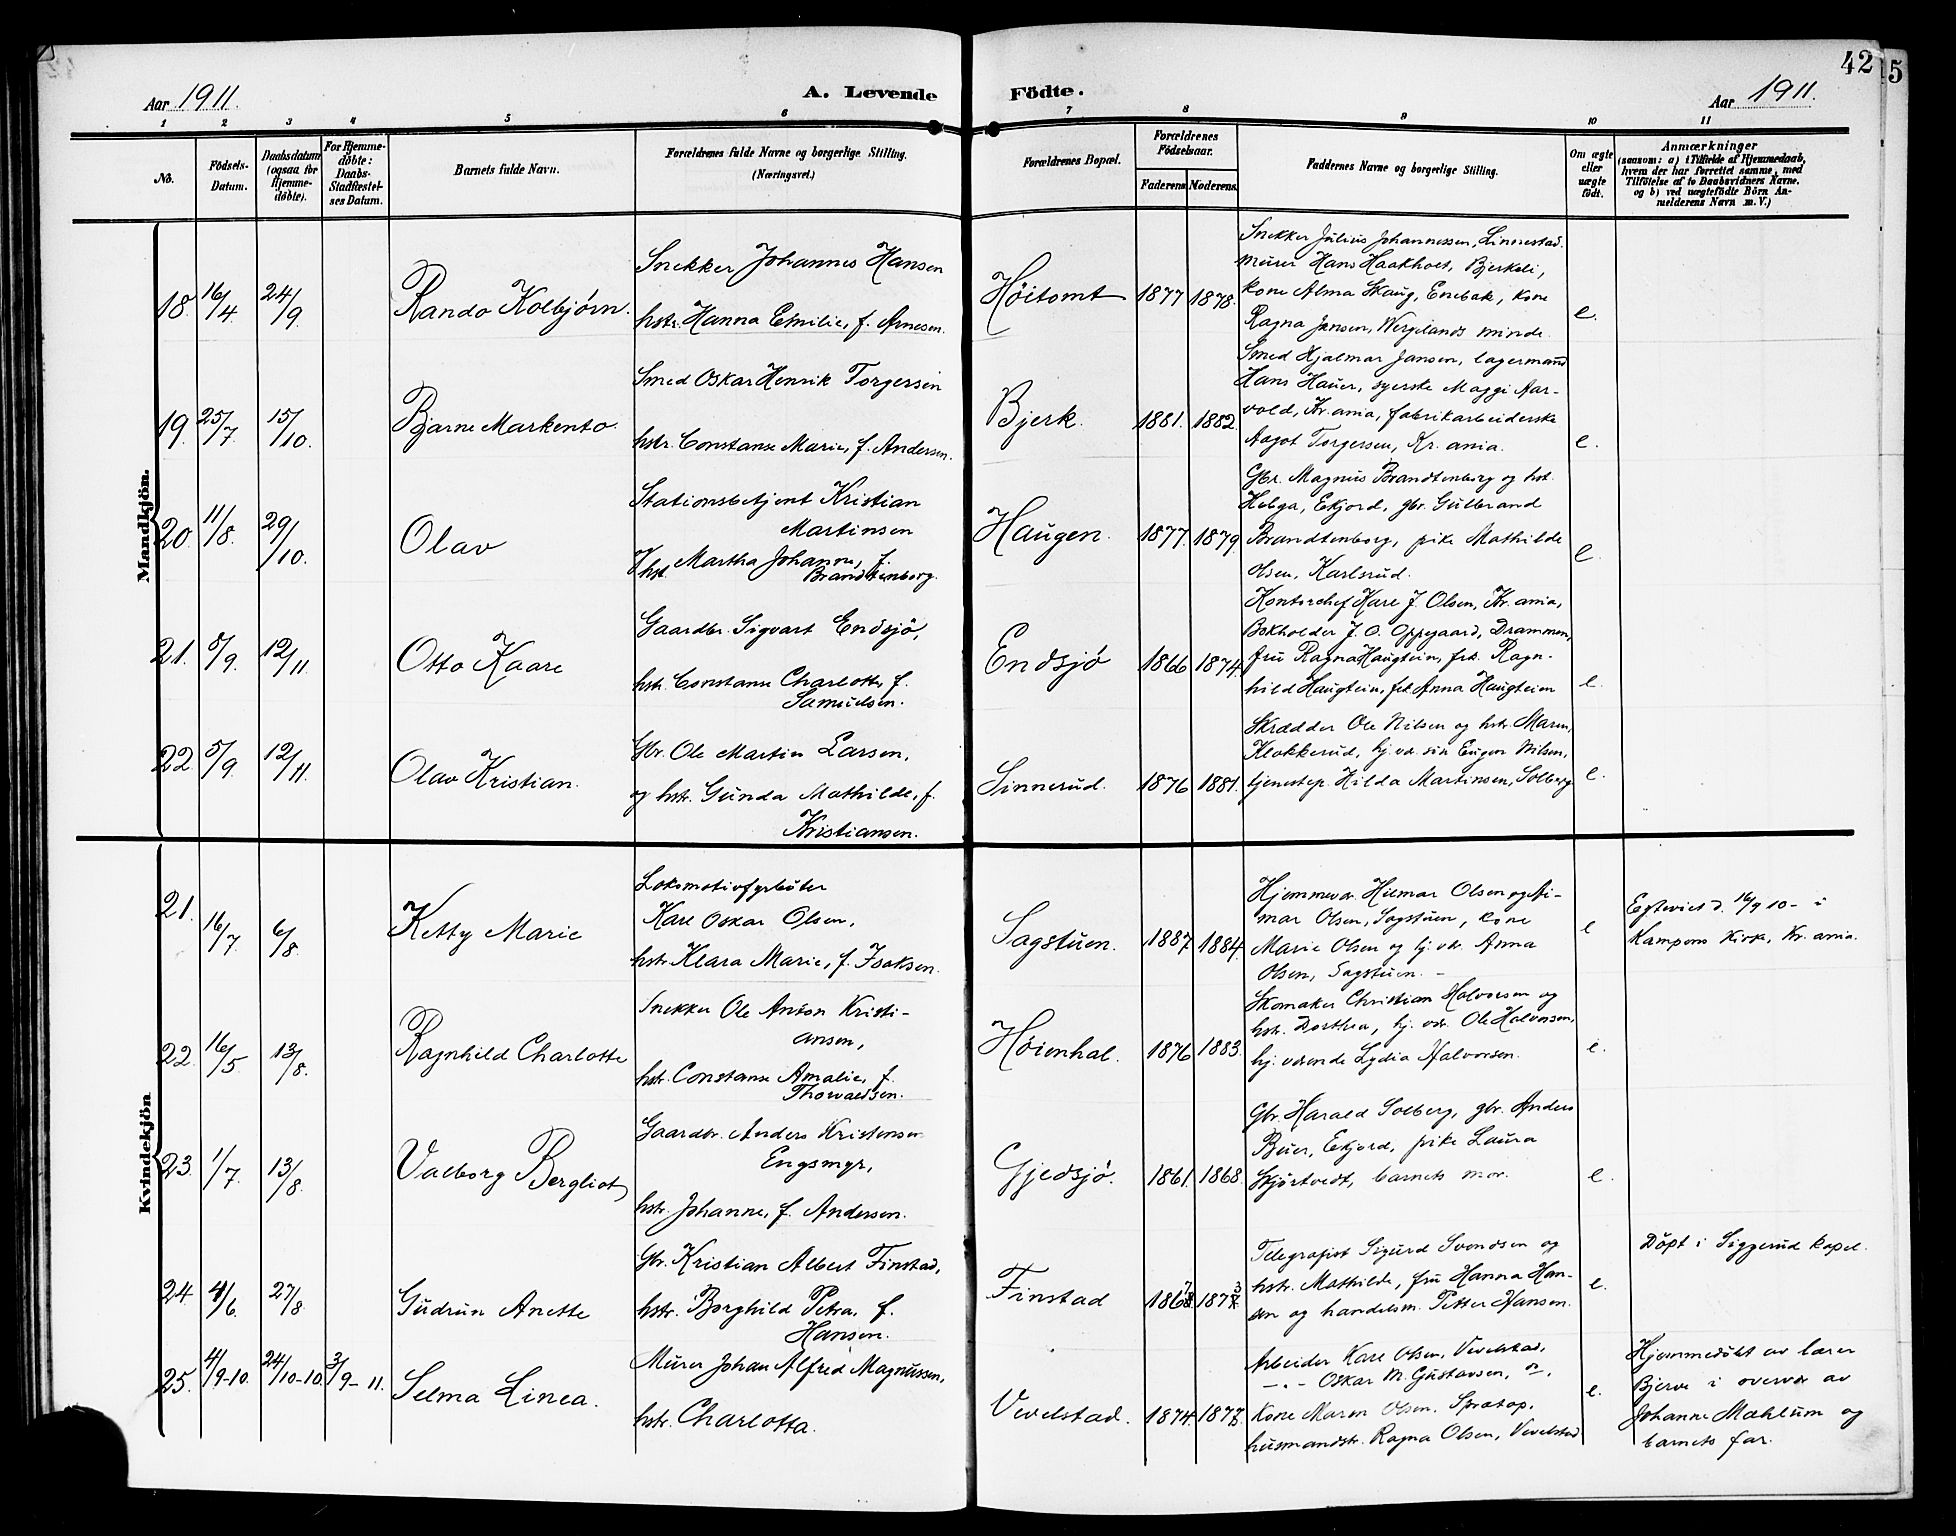 42
5
Aar 1911.
A. Levende
Födte.
Aar 1911.
1 2 3 4 5 6 7 8 9 10 11
No.
Födsels-
Datum.
Daabsdatum
(ogsaa for
Hjemme-
døbte).
For Hjemme-
døbte:
Daabs-
Stadfæstel-
ses Datum.
Barnets fulde Navn.
Forældrenes fulde Navne og borgerlige Stilling.
(Næringsvei.)
Forældrenes Bopæl.
Forældrenes
Födselsaar.
Faderens
Moderens
Faddernes Navne og borgerlige Stilling.
Om ægte
eller
uægte
födt.
Anmærkninger
(saasom: a) i Tilfælde af Hjemmedaab,
hvem der har forrettet samme, med
Tilföielse af to Daabsvidners Navne,
og b) ved uægtefödte Börn An-
melderens Navn m. V.)
Mandkjön.
18. 16/4 24/9
Rando Kolbjørn.
Snekker Johannes Hansen
hstr. Hanna Emilie, f. Arnesen.
Høitomt
1877 1878.
Snekker Julius Johannessen, Linnestad.
murer Hans Haakholt, Bjerkeli,
kone Alma Skaug, Enebak, kone
Ragna Jansen, Wergelands minde.
e.
19. 25/7 15/10.
Bjarne Markento.
Smed Oskar Henrik Torgersen
hstr. Constanse Marie, f. Andersen.
Bjerk.
1881. 1882.
Smed Hjalmar Jansen, lagermand
Hans Hauer, syerske Maggi Aar-
vold, Kr.ania, fabrikarbeiderske
Aagot Torgersen, Kr. ania.
e.
20. 11/8. 29/10.
Olav
Stationsbetjent Kristian
Martinsen
hst. Martha Johanne, f.
Brandtenborg.
Haugen.
1877. 1879
Gbr. Magnus Brandtenborg og hst.
Helga, Ekjord, gbr. Gulbrand
Brandtenborg, pike Mathilde
Olsen, Karlsrud.
e.
21. 5/9. 12/11.
Otto Kaare
Gaardbr. Sigvart Endsjø,
hstr. Constanse Charlotte, f.
Samuelsen.
Endsjø
1866 1874.
Kontorchef Karl J. Olsen, Kr. ania,
Bokholder J. O. Oppegaard, Drammen,
fru Ragna Haugtein, frk. Ragn-
hild Haugtein, frk Anna Haugtein
e.
22. 5/9. 12/11.
Olav Kristian.
Gbr. Ole Martin Larsen,
og hstr. Gunda Mathilde, f.
Kristiansen.
Sinnerud.
1876 1881.
Skrædder Ole Nilsen og hstr. Maren,
Klokkerud, hj. vær. søn Eugen Nilsen,
tjenestep. Hilda Martinsen, Solberg
e.
Kvindekjön
21. 16/7 6/8.
Ketty Marie
Lokomotivfyrbøter
Karl Oskar Olsen,
hstr. Klara Marie, f. Isaksen.
Sagstuen.
1887 1884.
Hjemmevær. Hilmar Olsen og Ai-
mar Olsen, Sagstuen, kone
Marie Olsen og hj. vær. Anna
Olsen, Sagstuen. -
e
Egteviet d. 16/9 10 - i
Kampens Kirke, Kr. ania.
22. 16/5 13/8.
Ragnhild Charlotte
Snekker Ole Anton Kristi-
ansen,
hstr. Constanse Amalie, f.
Thorvaldsen.
Høienhal.
1876 1883.
Skomaker Christian Halvorsen og
hstr. Dorthea, hj. vær. Ole Halvorsen,
hj. værende Lydia Halvorsen.
e.
23. 1/7 13/8.
Valborg Bergliot
Gaardbr. Anders Kristensen
Engsmyr,
hstr. Johanne, f. Andersen.
Gjedsjø.
1861. 1868.
Gbr. Harald Solberg, gbr. Anders
Buer, Ekjord, pike Laura
Skjørtvedt, barnets mor.
e.
24. 4/6. 27/8
Gudrun Anette
Gbr. Kristian Albert Finstad,
hstr. Borghild Petra, f.
Hansen.
Finstad
1867 1873
Telegrafist Sigurd Svendsen og
hstr. Mathilde, fru Hanna Han-
sen og handelsm. Petter Hansen.
e.
Døpt i Siggerud kapel.
25. 4/9-10. 24/10-10. 3/9-11.
Selma Linea.
Murer Johan Alfred Magnussen,
hstr. Charlotta.
Vevelstad.
1874. 1877.
Arbeider Karl Olsen, Vevelstad,
- " - Oskar M. Gustavsen,
Kone Maren Olsen. Sprætop.
husmandstr. Ragna Olsen, Vevelstad
e.
Hjemmedøbt av lærer
Bjerve i overvær av
Johanne Mæhlum og
barnets far.